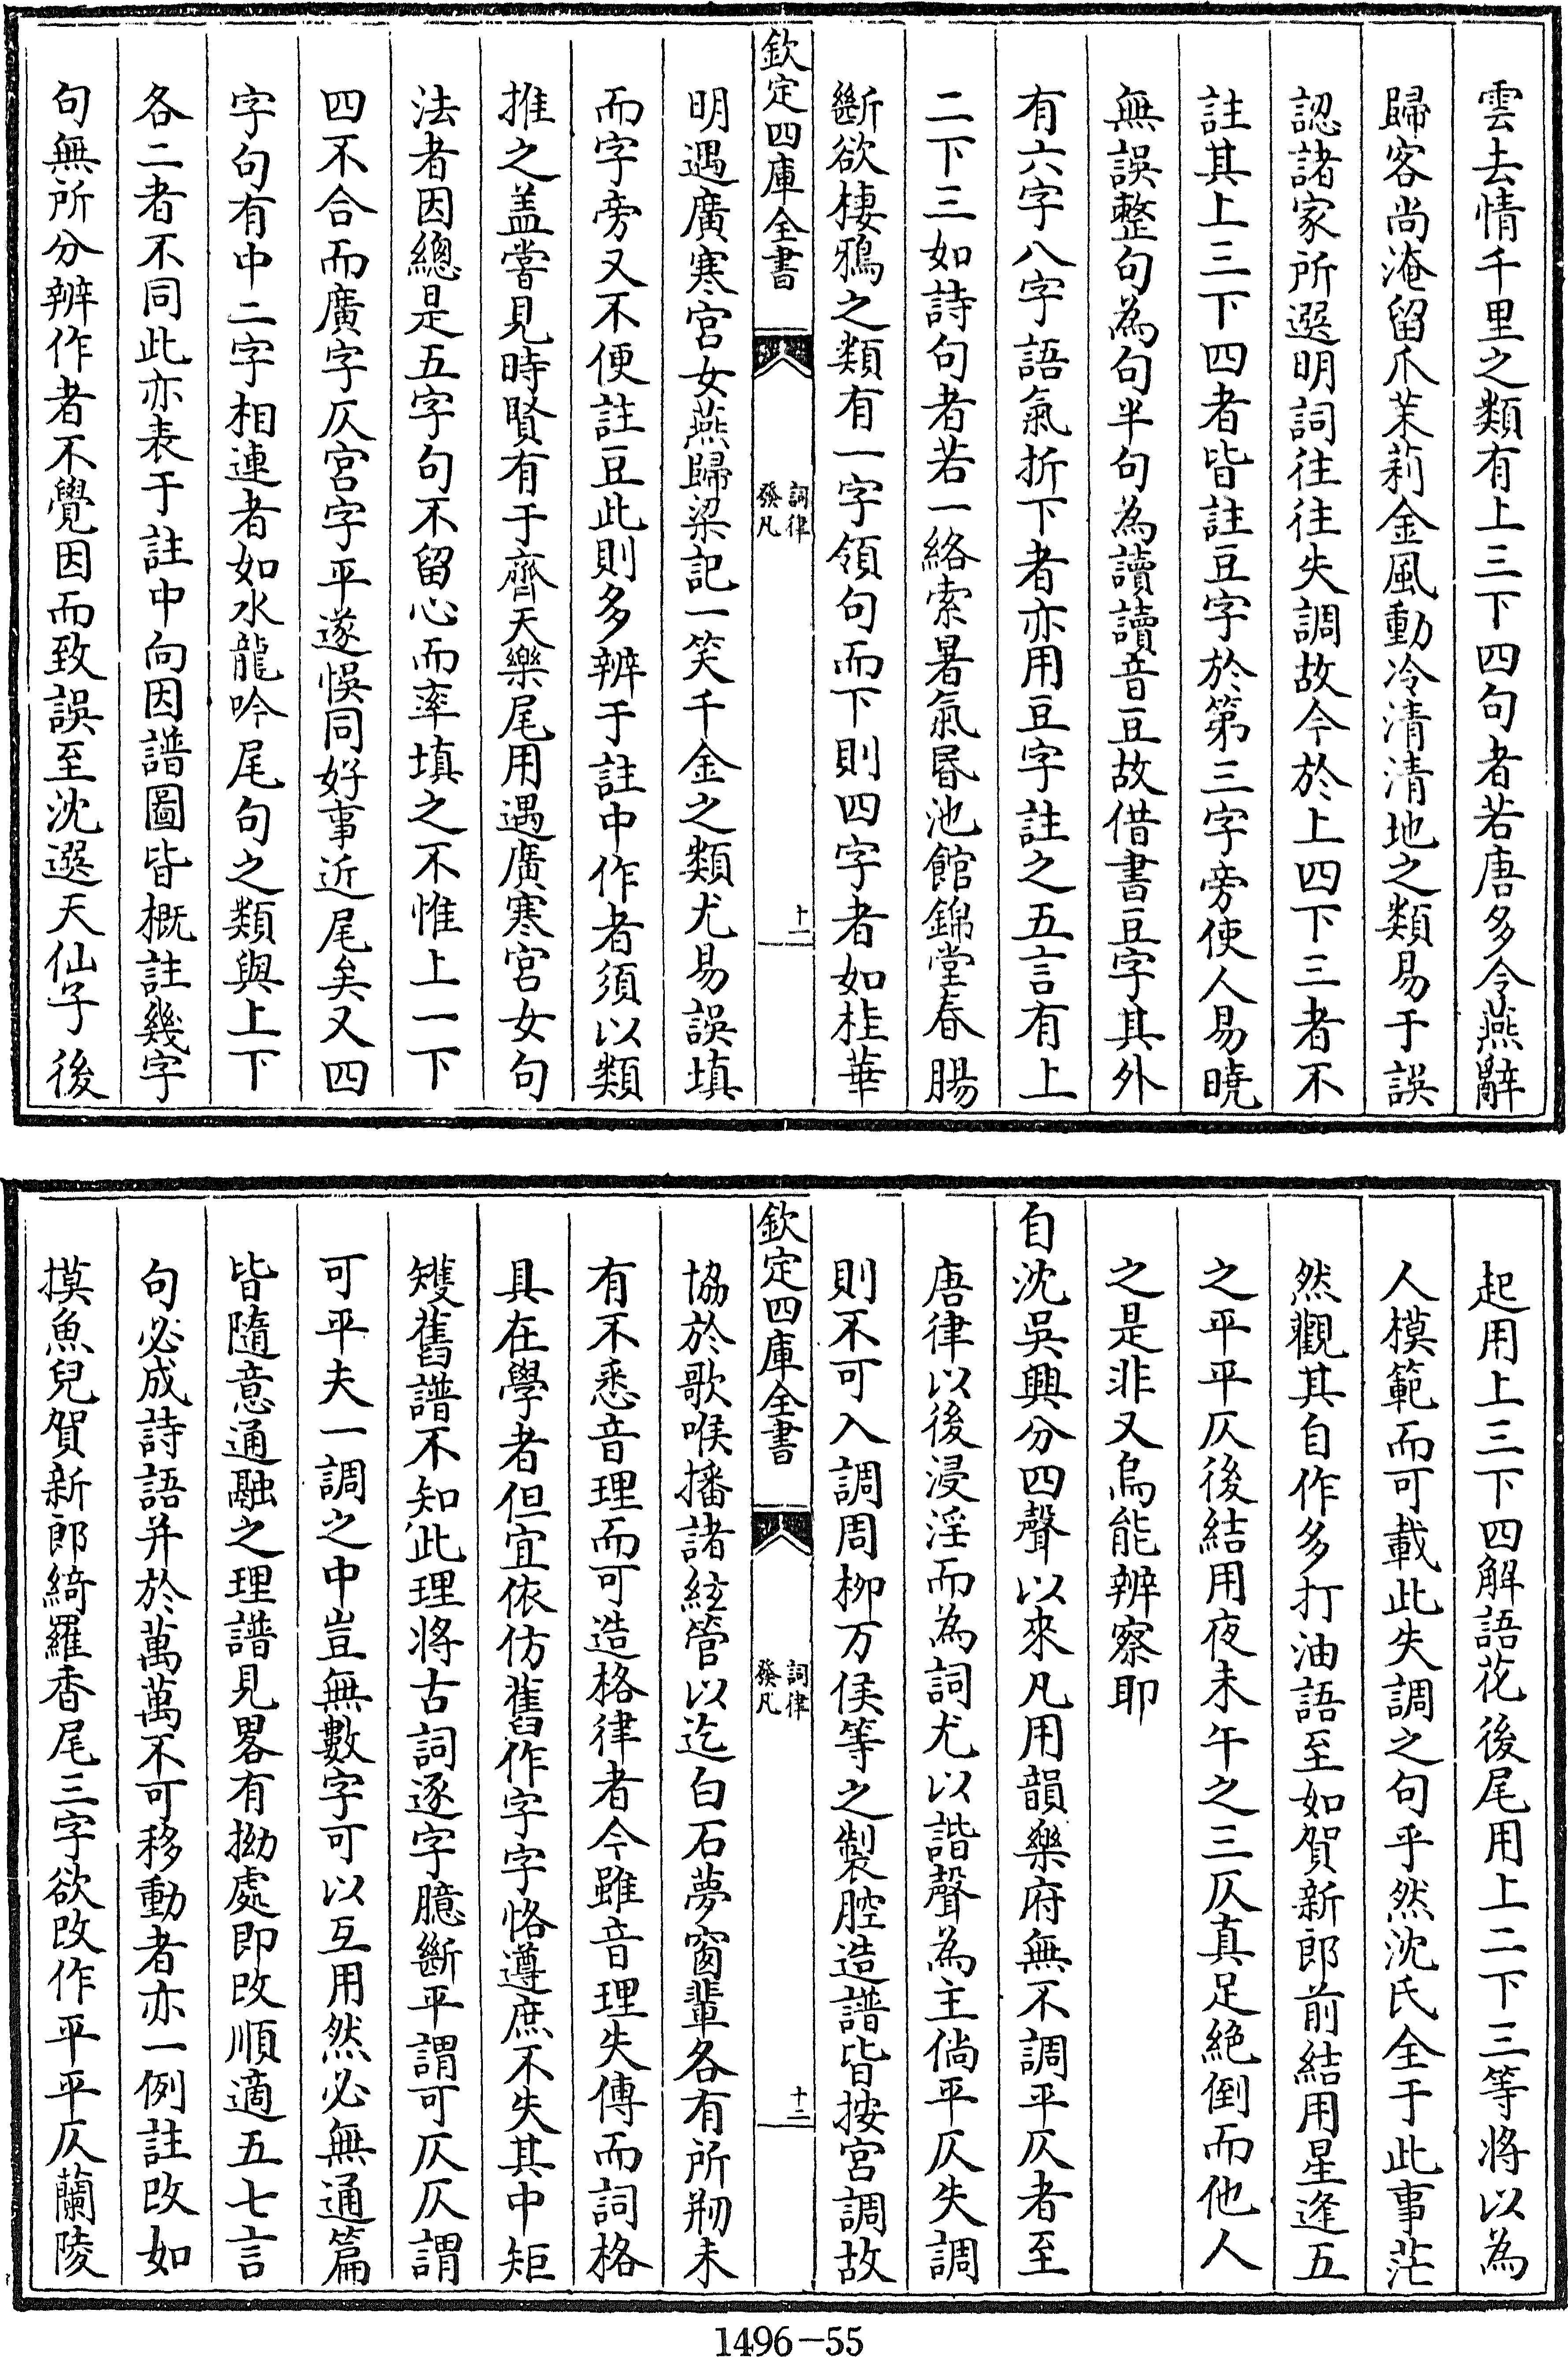 雲去情千里之類有上三下四句者若唐多令燕辭
歸客尚淹留爪茉莉金風動冷清清地之類易于誤
認諸家所選明詞往往失調故今於上四下三者不
註其上三下四者皆註豆字於第三字旁使人易曉
無誤整句為句半句為讀讀音豆故借書豆字其外
有六字八字語氣折下者亦用豆字註之五言有上
二下三如詩句者若一絡索暑氣昬池館錦堂春腸
斷欲棲鴉之類有一字領句而下則四字者如桂華
欽定四庫全書
詞律
發凡
十一
明遇廣寒宮女燕歸梁記一笑千金之類尤易誤填
而字旁又不便註豆此則多辨于註中作者須以類
推之盖嘗見時賢有于齊天樂尾用遇廣寒宮女句
法者因總是五字句不留心而率填之不惟上一下
四不合而廣字仄宮字平遂悞同好事近尾矣又四
字句有中二字相連者如水龍吟尾句之類與上下
各二者不同此亦表于註中向因譜圖皆概註幾字
句無所分辨作者不覺因而致誤至沈選天仙子後
起用上三下四解語花後尾用上二下三等將以為
人模範而可載此失調之句乎然沈氏全于此事茫
然觀其自作多打油語至如賀新郎前結用星逢五
之平平仄後結用夜未午之三仄真足絶倒而他人
之是非又烏能辨察耶
自沈吳興分四聲以來凡用韻樂府無不調平仄者至
唐律以後浸淫而為詞尤以諧聲為主倘平仄失調
則不可入調周柳万俟等之製腔造譜皆按宮調故
欽定四庫全書
詞律
發凡
十二
協於歌喉播諸絃管以迄白石夢窗輩各有所剏未
有不悉音理而可造格律者今雖音理失傳而詞格
具在學者但宜依仿舊作字字恪遵庶不失其中矩
矱舊譜不知此理將古詞逐字臆斷平謂可仄仄謂
可平夫一調之中豈無數字可以互用然必無通篇
皆隨意通融之理譜見畧有拗處即改順適五七言
句必成詩語并於萬萬不可移動者亦一例註改如
摸魚兒賀新郎綺羅香尾三字欲改作平平仄蘭陵
1496-55